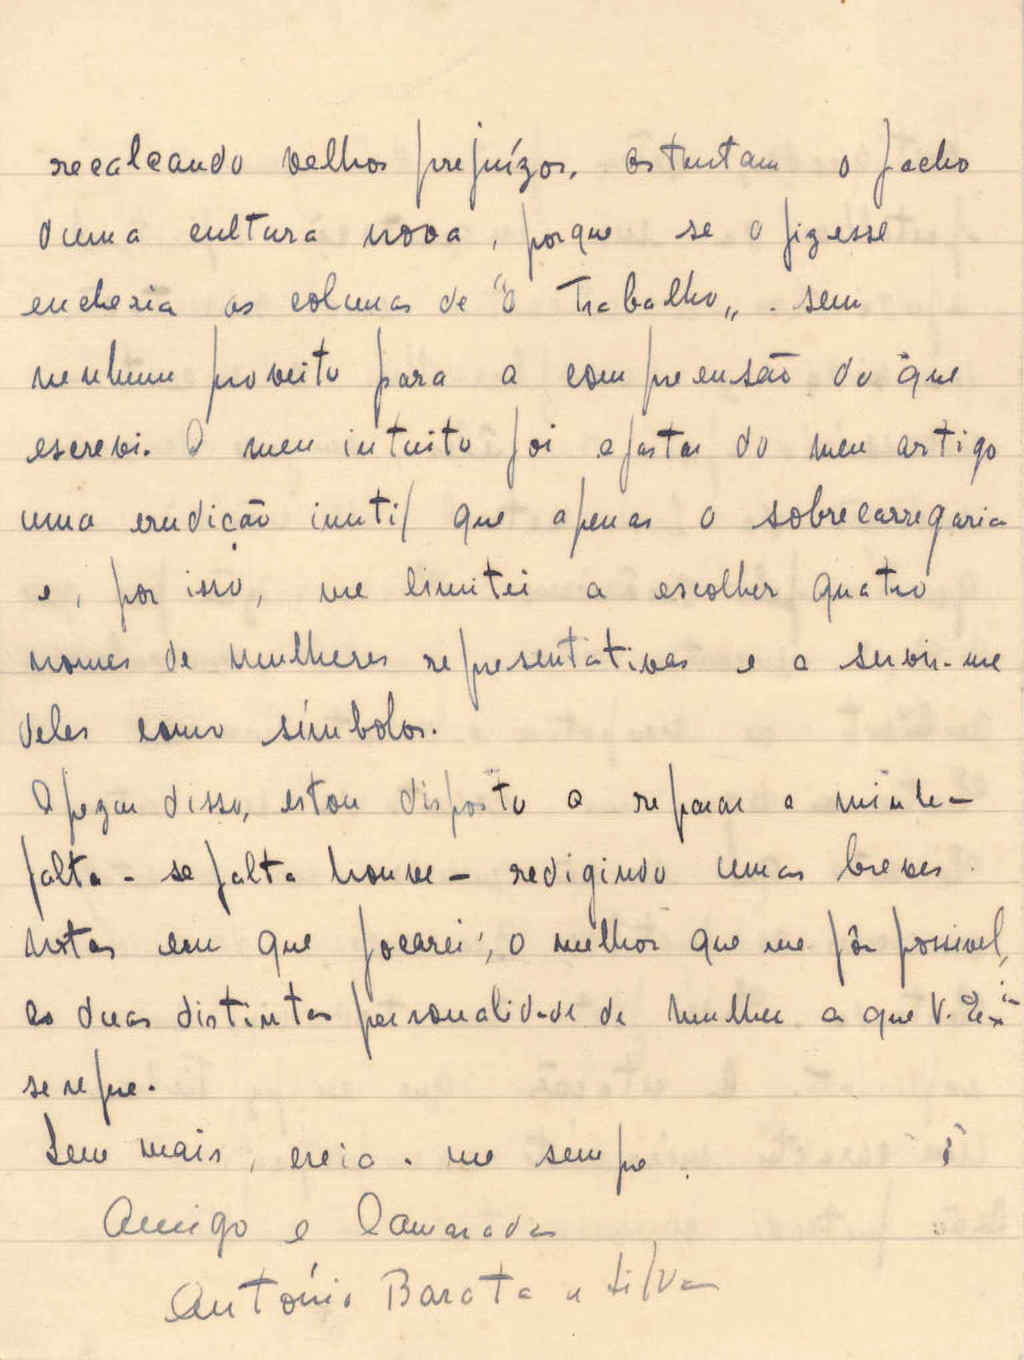 recalcando velhos prejuízos, ostentam o facho
duma cultura nova, porque se o fizesse
encheria as colunas de "O Trabalho„. sem
nenhum proveito para a compreensão do que
escrevi. O meu intuito foi afastar do meu artigo
uma erudição inutil que apenas o sobrecarregaria
e, por isso, me limitei a escolher quatro
nomes de mulheres representativas e a servir-me
deles como símbolos.
Apezar disso, estou disposto a reparar a minha
falta - se falta houve - redigindo umas breves
notas em que focarei, o melhor que me fôr possivel,
as duas distintas personalidade de mulher a que V. Exª
se refere.
Sem mais, creia-me sempre
Amigo e Camarada
António Barata e Silva